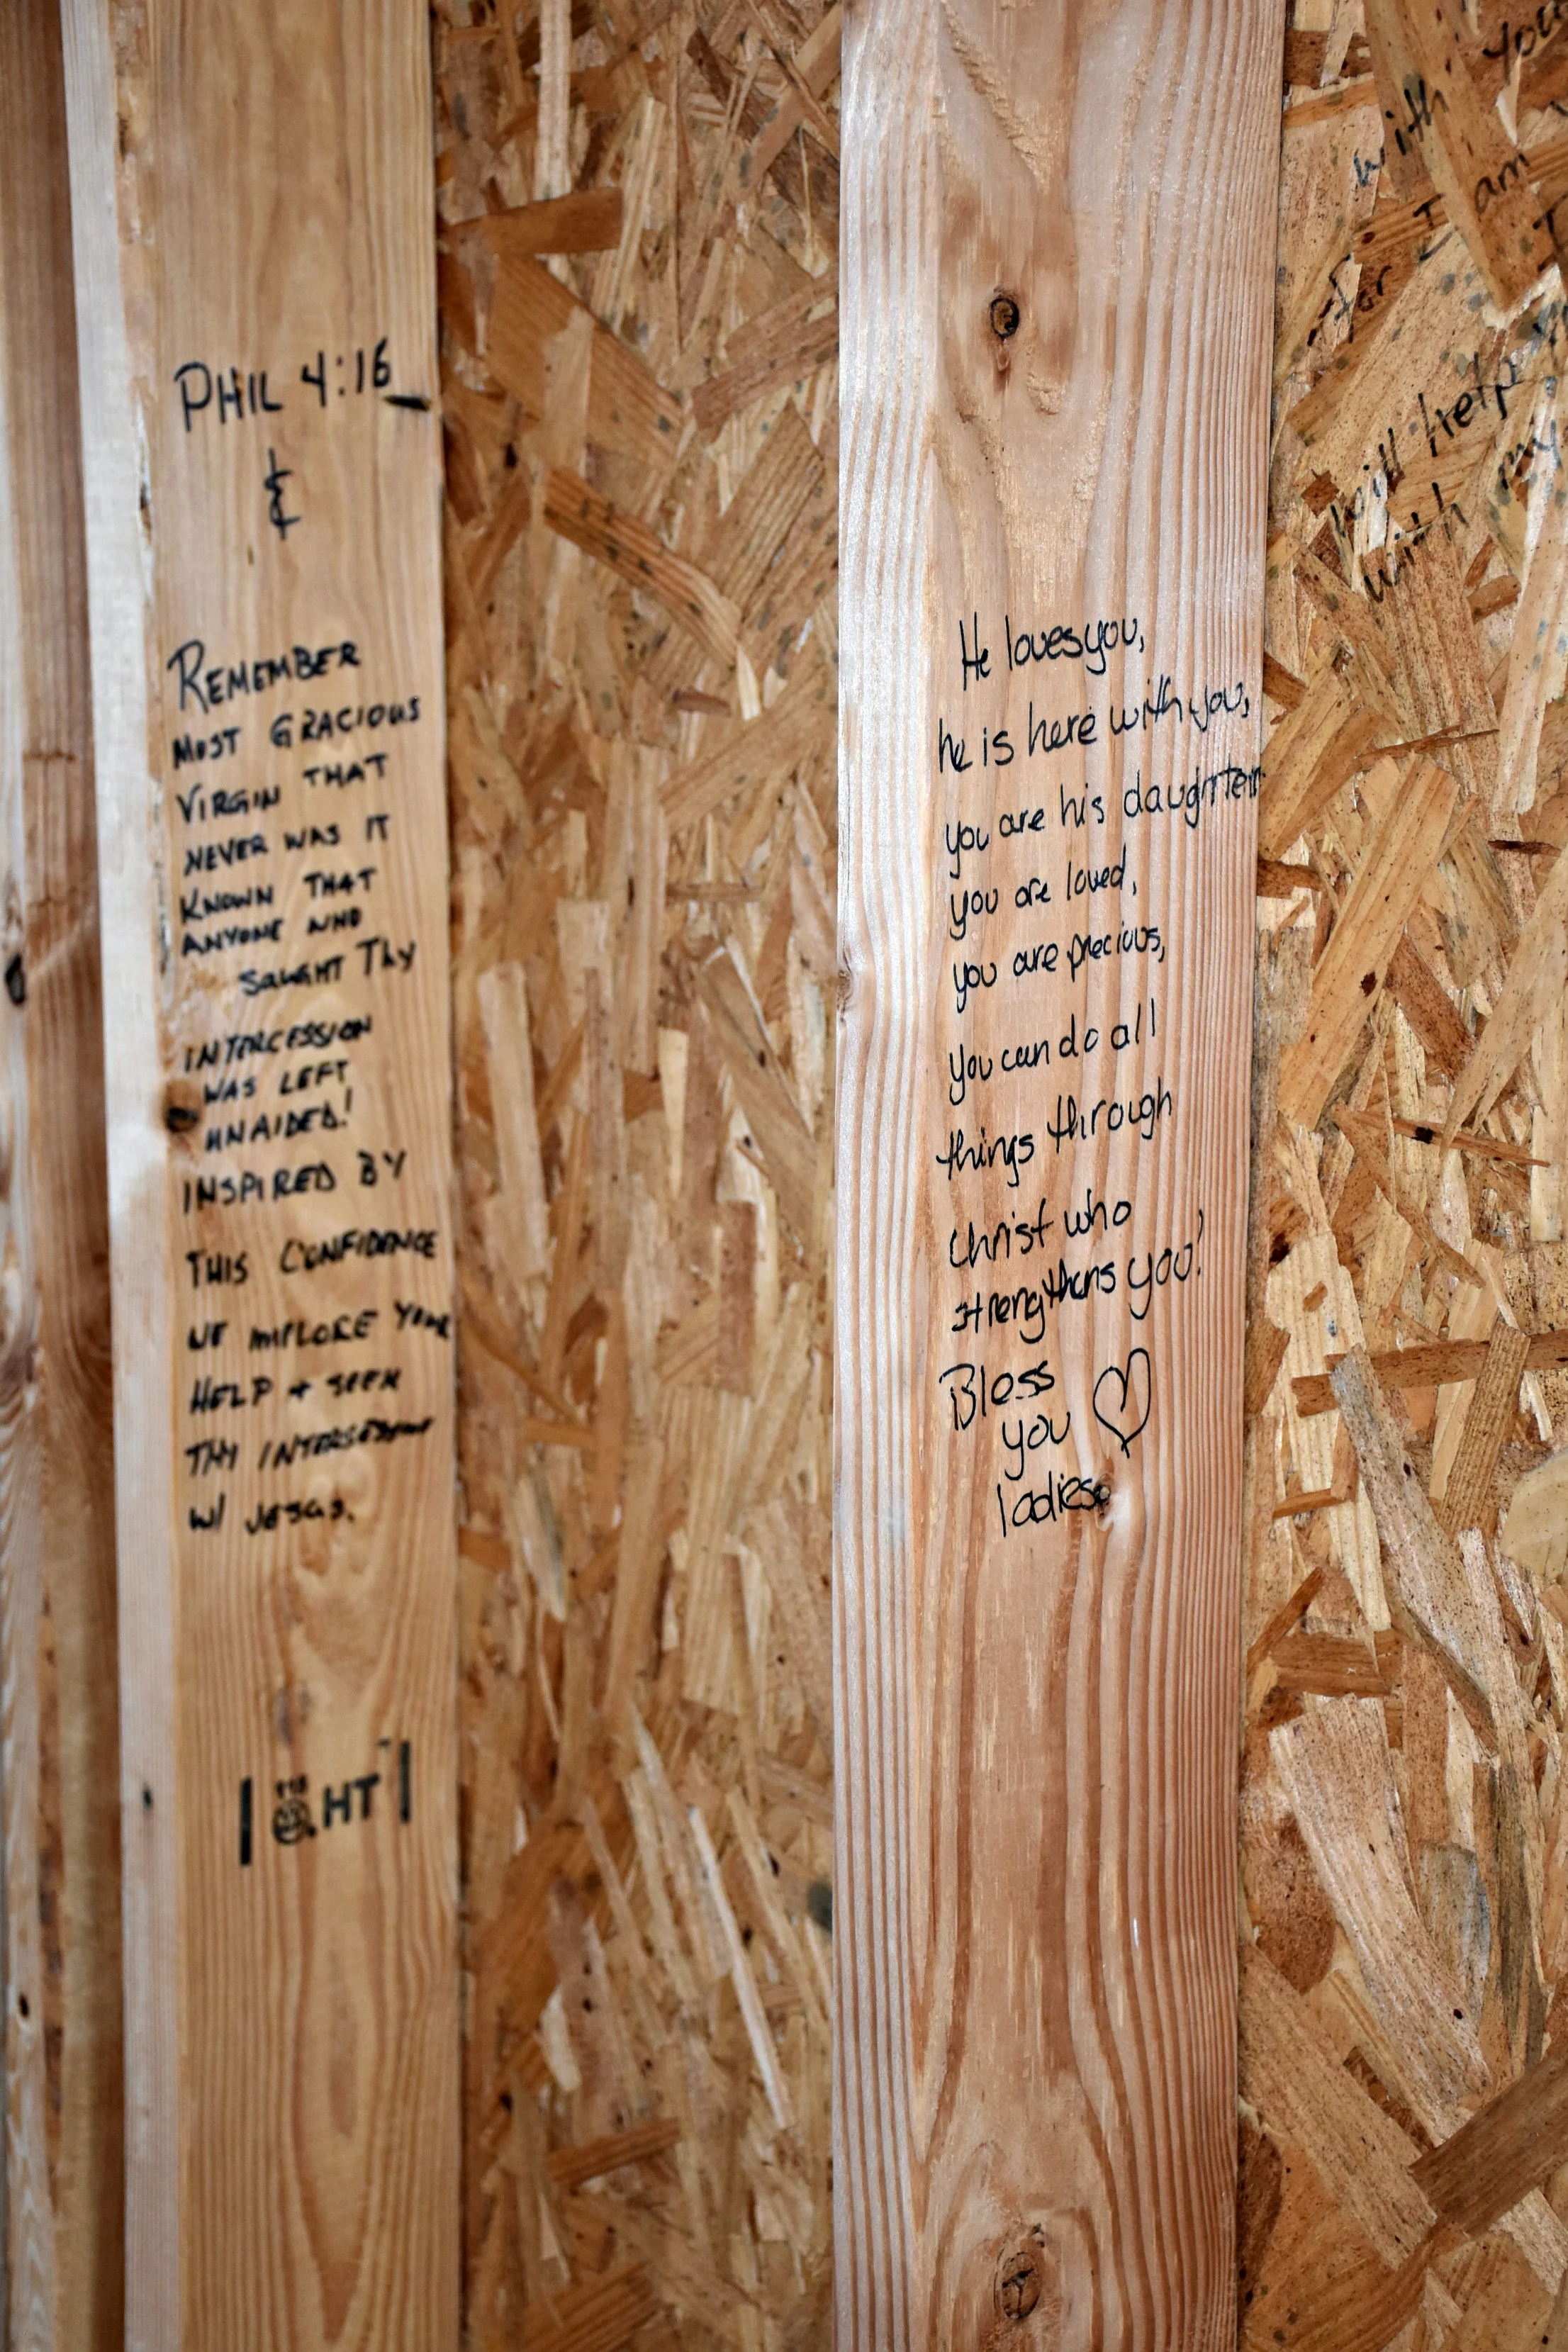 PHIL 4:16
&
REMEMBER
MOST GRACIOUS
VIRGIN THAT
NEVER WAS IT
KNOWN THAT
ANYONE WHO
SOUGHT THY
INTERCESSION
WAS LEFT
UNAIDED!
INSPIRED BY
THIS CONFIDENCE
WE IMPLORE YOUR
HELP + SEEK
THY
W/ JESUS.
HT
He loves you,
he is here with you,
you are his daughter
you are loved,
you are precious,
you can do all
things through
Christ who
strengthens you!
Bless
you
ladies
with you
for I am
will help
with my